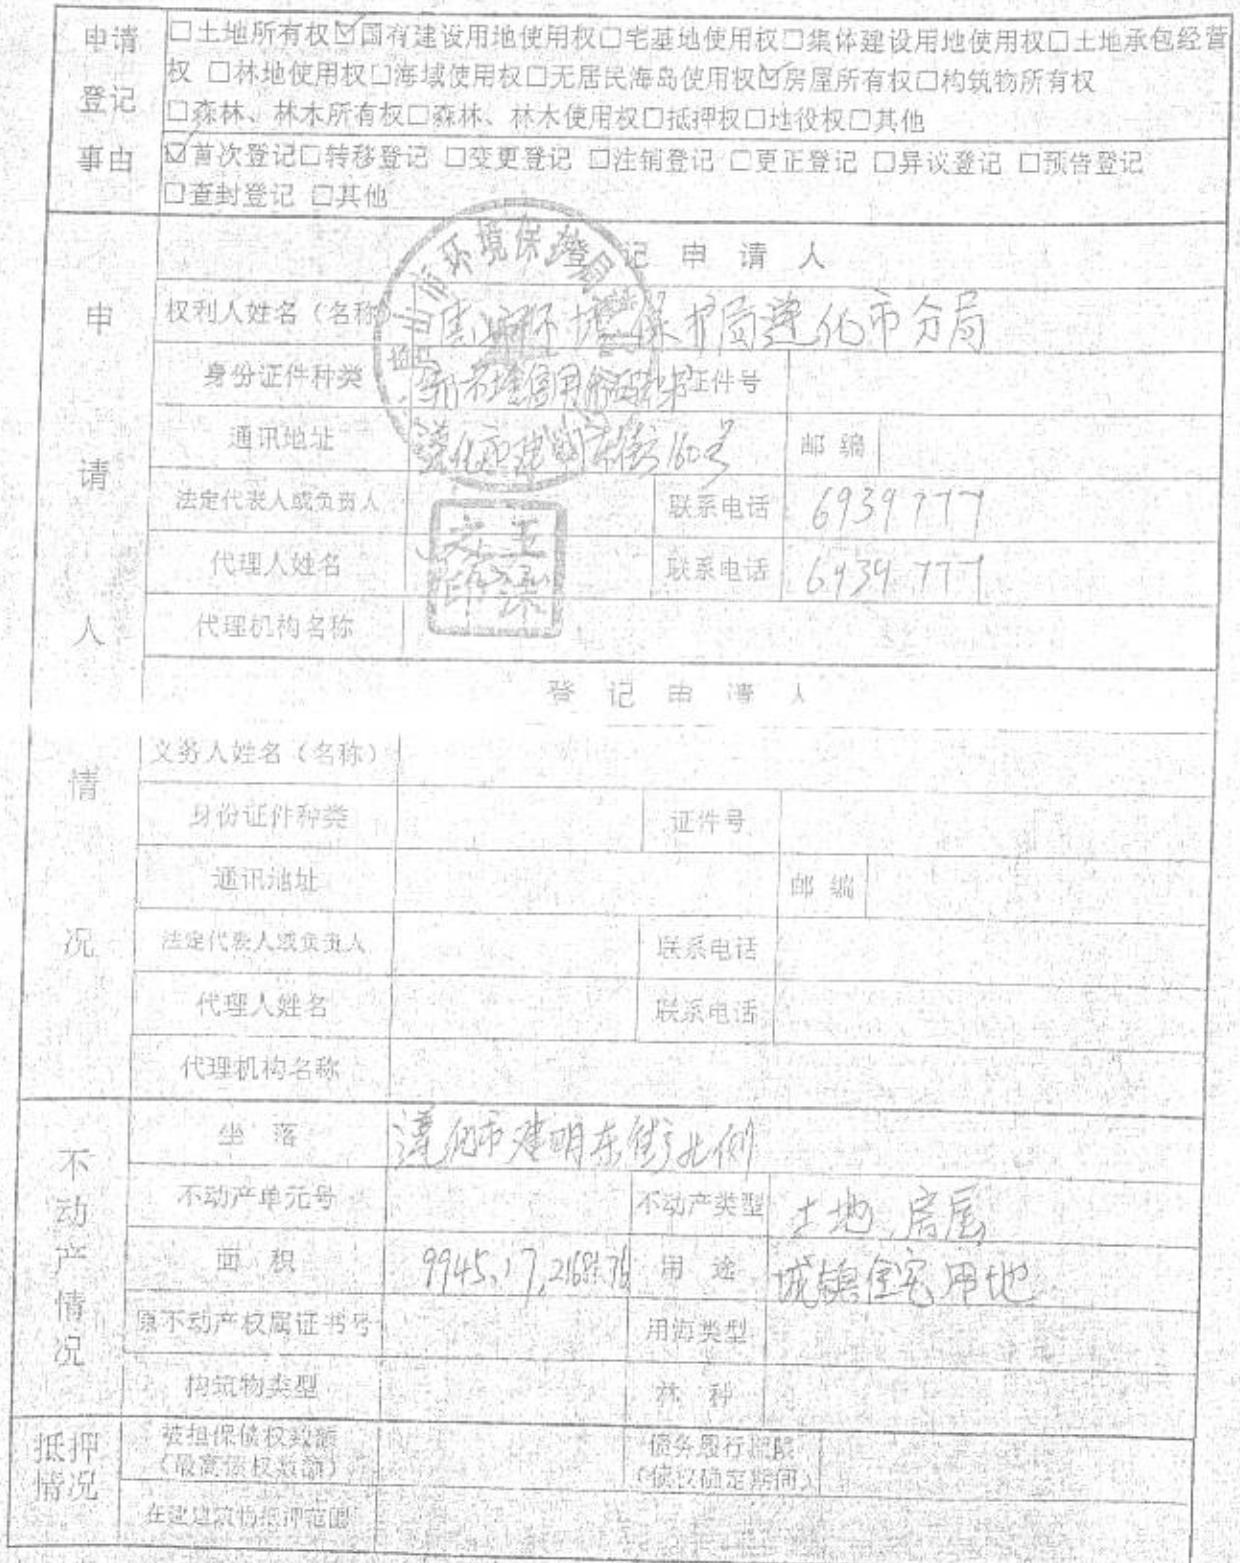 申请登记事由
□土地所有权☑国有建设用地使用权□宅基地使用权□集体建设用地使用权□土地承包经营
权 □林地使用权□海域使用权□无居民海岛使用权☑房屋所有权□构筑物所有权
□森林、林木所有权□森林、林木使用权□抵押权□地役权□其他
☑首次登记□转移登记 □变更登记 □注销登记 □更正登记 □异议登记 □预告登记
□查封登记 □其他
申请人情况
登记申请人
权利人姓名（名称） 唐山市环境保护局遵化市分局
身份证件种类 统一社会信用代码证书 证件号
通讯地址 遵化市建明东街160号 邮编
法定代表人或负责人 联系电话 6939777
代理人姓名 联系电话 6939777
代理机构名称
登记申请人
义务人姓名（名称）
身份证件种类 证件号
通讯地址 邮编
法定代表人或负责人 联系电话
代理人姓名 联系电话
代理机构名称
不动产情况
坐落 遵化市建明东街北侧
不动产单元号 不动产类型 土地、房屋
面积 9945.17, 用途 城镇住宅用地
原不动产权属证书号 用海类型
构筑物类型 林种
抵押情况
被担保债权数额 债务履行期限
（最高债权数额） （债权确定期间）
在建建筑物抵押范围